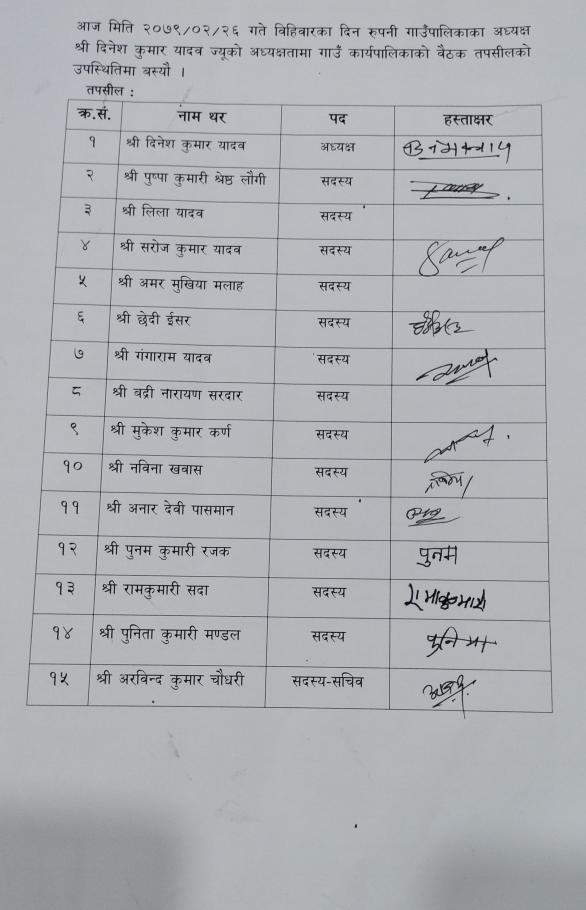 आज मिति २०७९/०२/२६ गते विहिवारका दिन रुपनी गाउँपालिकाका अध्यक्ष
श्री दिनेश कुमार यादव ज्यूको अध्यक्षतामा गाउँ कार्यपालिकाको बैठक तपसीलको
उपस्थितिमा बस्यौ ।
तपसील :
क्र.सं. नाम थर पद हस्ताक्षर
१ श्री दिनेश कुमार यादव अध्यक्ष
२ श्री पुष्पा कुमारी श्रेष्ठ लौगी सदस्य
३ श्री लिला यादव सदस्य
४ श्री सरोज कुमार यादव सदस्य
५ श्री अमर मुखिया मलाह सदस्य
६ श्री छेदी ईसर सदस्य
७ श्री गंगाराम यादव सदस्य
८ श्री बद्री नारायण सरदार सदस्य
९ श्री मुकेश कुमार कर्ण सदस्य
१० श्री नविना खवास सदस्य
११ श्री अनार देवी पासमान सदस्य
१२ श्री पुनम कुमारी रजक सदस्य पुनम
१३ श्री रामकुमारी सदा सदस्य
१४ श्री पुनिता कुमारी मण्डल सदस्य
१५ श्री अरविन्द कुमार चौधरी सदस्य-सचिव